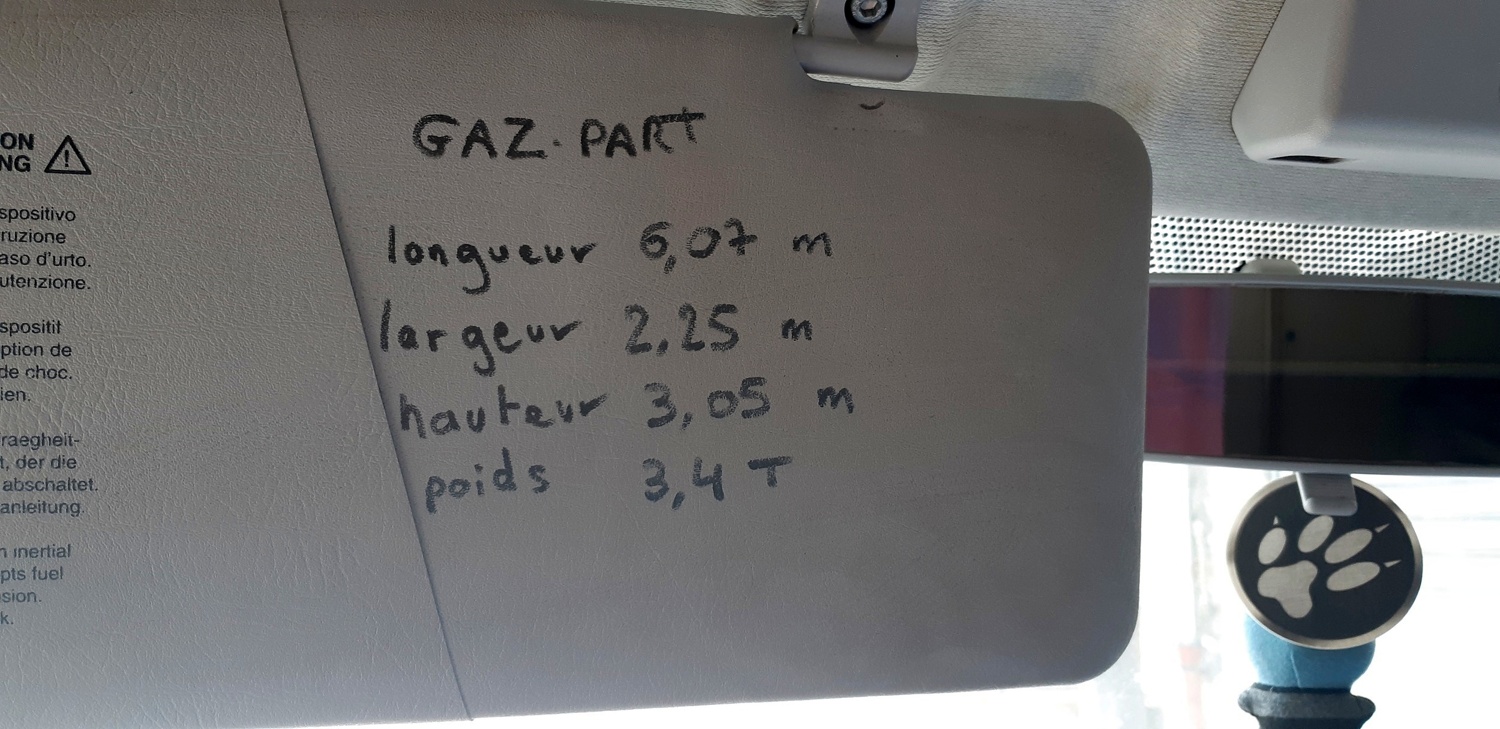 ON
NG
spositivo
ruzione
aso d'urto.
utenzione.
spositif
ption de
de choc.
ien.
raegheit-
t, der die
abschaltet.
anleitung.
n inertial
pts fuel
sion.
k.
GAZ. PART
longueur 6,07 m
largeur 2,25 m
hauteur 3,05 m
poids 3,4 T